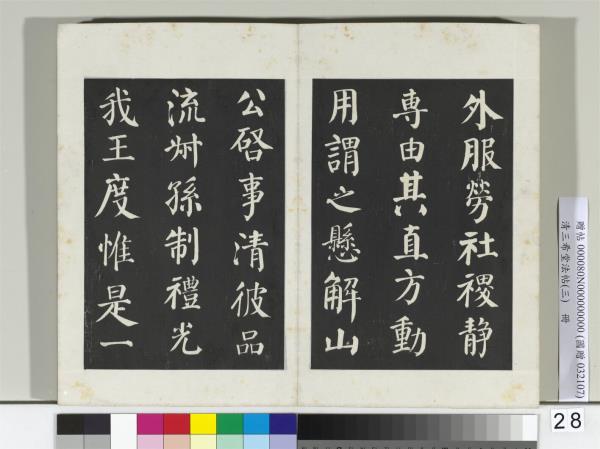 外服勞社稷静
専由其直方動
用謂之懸解山
公啓事清彼品
流叔孫制禮光
我王度惟是一
贈帖 000080N000000000 (圖贈 032107)
清三希堂法帖(三) 冊
28